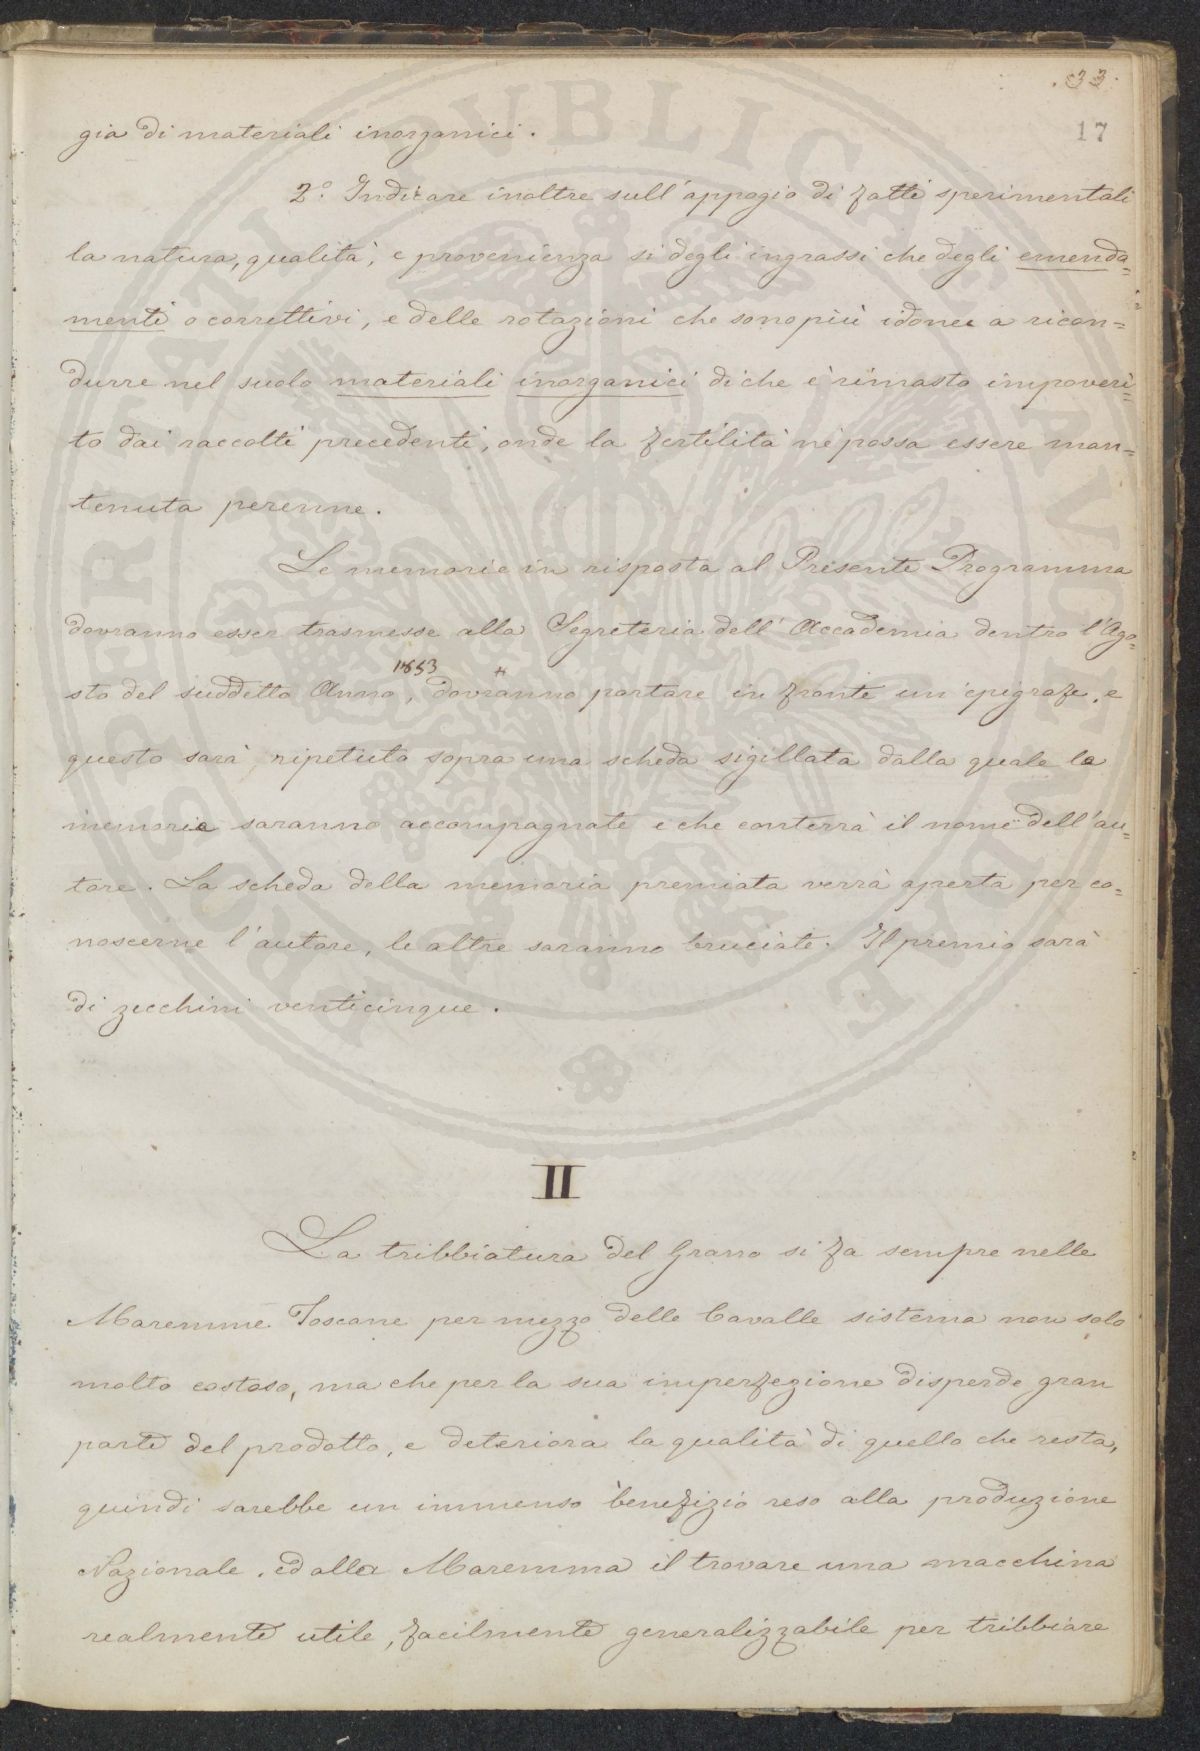 .33.
17
gia di materiali inorganici.
2.° Indicare inoltre sull'appogio di fatti sperimentali
la natura, qualità, e provenienza sì degli ingrassi che degli emenda=
menti o correttivi, e delle rotazioni che sono più idonee a ricon=
durre nel suolo materiali inorganici di che è rimasto impoveri=
to dai raccolti precedenti, onde la fertilità ne possa essere man=
tenuta perenne.
Le memorie in risposta al Presente Programma
dovranno esser trasmesse alla Segreteria dell'Accademia dentro l'Ago=
1853
sto del suddetto Anno, dovranno portare in fronte un'epigrafe, e
questo sarà ripetuto sopra una scheda sigillata dalla quale le
memorie saranno accompagnate e che conterrà il nome dell'au=
tore. La scheda della memoria premiata verrà aperta per co=
noscerne l'autore, le altre saranno bruciate. Il premio sarà
di zecchini venticinque.
II
La tribbiatura del Grano si fa sempre nelle
Maremme Toscane per mezzo delle Cavalle sistema non solo
molto costoso, ma che per la sua imperfezione disperde gran
parte del prodotto, e deteriora la qualità di quello che resta,
quindi sarebbe un immenso benefizio reso alla produzione
Nazionale, ed alla Maremma il trovare una macchina
realmente utile, facilmente generalizzabile per tribbiare
PROSPERITATI PVBLICAE AVGENDAE